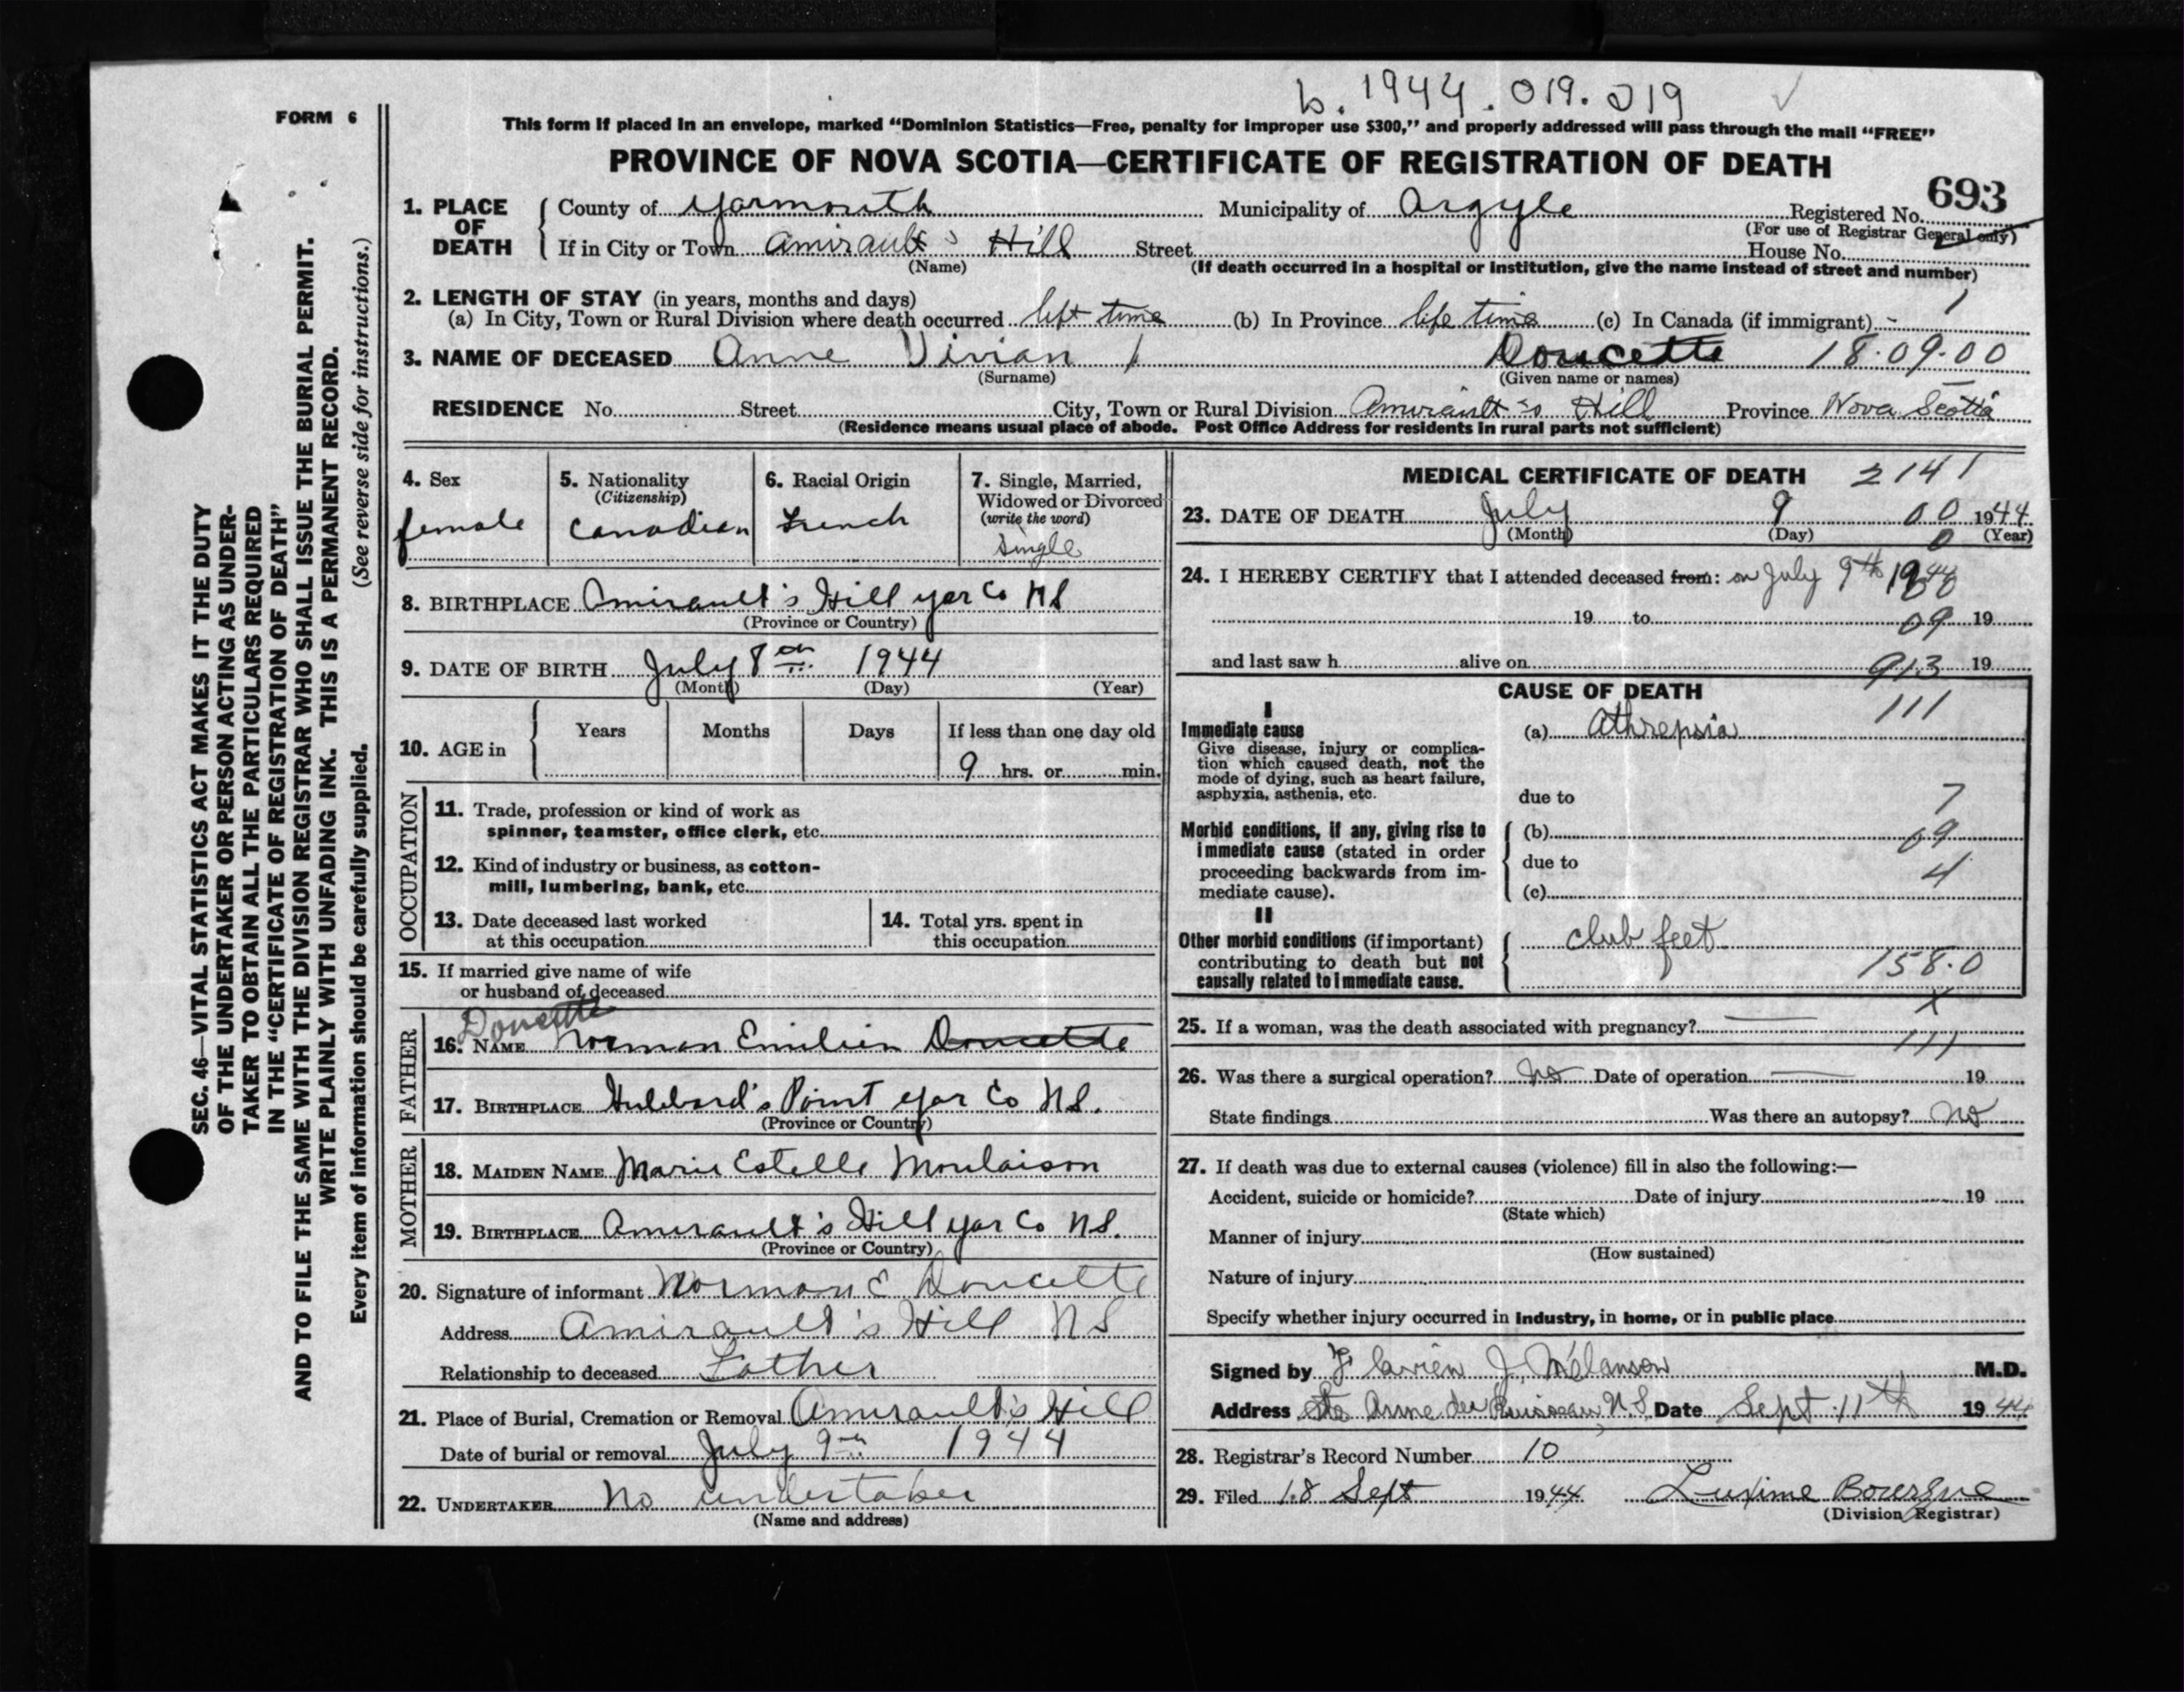 b. 1944. 019. 019
FORM 6
This form if placed in an envelope, marked “Dominion Statistics—Free, penalty for improper use $300,” and properly addressed will pass through the mail “FREE”
PROVINCE OF NOVA SCOTIA—CERTIFICATE OF REGISTRATION OF DEATH
693
1. PLACE OF DEATH
County of Yarmouth Municipality of Argyle Registered No.
(For use of Registrar General only)
If in City or Town Amirault's Hill Street House No.
(Name) (If death occurred in a hospital or institution, give the name instead of street and number)
2. LENGTH OF STAY (in years, months and days)
(a) In City, Town or Rural Division where death occurred left time (b) In Province life time (c) In Canada (if immigrant) -
3. NAME OF DECEASED Anne Vivian Doucette 18.09.00
(Surname) (Given name or names)
RESIDENCE No. Street City, Town or Rural Division Amirault's Hill Province Nova Scotia
(Residence means usual place of abode. Post Office Address for residents in rural parts not sufficient)
4. Sex female
5. Nationality (Citizenship) Canadian
6. Racial Origin French
7. Single, Married, Widowed or Divorced (write the word) Single
8. BIRTHPLACE Amirault's Hill Yar Co NS
(Province or Country)
9. DATE OF BIRTH July 8th 1944
(Month) (Day) (Year)
10. AGE in Years Months Days If less than one day old
9 hrs. or min.
OCCUPATION
11. Trade, profession or kind of work as
spinner, teamster, office clerk, etc.
12. Kind of industry or business, as cotton-
mill, lumbering, bank, etc.
13. Date deceased last worked
at this occupation
14. Total yrs. spent in
this occupation
15. If married give name of wife
or husband of deceased
FATHER
Doucette
16. NAME Norman Emilien Doucette
17. BIRTHPLACE Hubbard's Point Yar Co N.S.
(Province or Country)
MOTHER
18. MAIDEN NAME Marie Estelle Moulaison
19. BIRTHPLACE Amirault's Hill Yar Co N.S.
(Province or Country)
20. Signature of informant Norman E Doucette
Address Amirault's Hill NS
Relationship to deceased Father
21. Place of Burial, Cremation or Removal Amirault's Hill
Date of burial or removal July 9th 1944
22. UNDERTAKER No undertaker
(Name and address)
MEDICAL CERTIFICATE OF DEATH 2141
23. DATE OF DEATH July 9 00 1944
(Month) (Day) 0 (Year)
24. I HEREBY CERTIFY that I attended deceased from: on July 9th 1944
19 to 09 19
and last saw h alive on 913 19
CAUSE OF DEATH
111
I
Immediate cause
Give disease, injury or complica-
tion which caused death, not the
mode of dying, such as heart failure,
asphyxia, asthenia, etc.
(a) Athrepsia
due to 7
Morbid conditions, if any, giving rise to
immediate cause (stated in order
proceeding backwards from im-
mediate cause).
(b) 09
due to 4
(c)
II
Other morbid conditions (if important)
contributing to death but not
causally related to immediate cause.
club feet
158.0
x
25. If a woman, was the death associated with pregnancy?
111
26. Was there a surgical operation? No Date of operation 19
State findings Was there an autopsy? No
27. If death was due to external causes (violence) fill in also the following:—
Accident, suicide or homicide? Date of injury 19
(State which)
Manner of injury
(How sustained)
Nature of injury
Specify whether injury occurred in industry, in home, or in public place
Signed by Flavien J. Melanson M.D.
Address Ste Anne du Ruisseau, N.S. Date Sept 11th 1944
28. Registrar's Record Number 10
29. Filed 18 Sept 1944 Luxime Bourque
(Division Registrar)
SEC. 46—VITAL STATISTICS ACT MAKES IT THE DUTY
OF THE UNDERTAKER OR PERSON ACTING AS UNDER-
TAKER TO OBTAIN ALL THE PARTICULARS REQUIRED
IN THE “CERTIFICATE OF REGISTRATION OF DEATH”
AND TO FILE THE SAME WITH THE DIVISION REGISTRAR WHO SHALL ISSUE THE BURIAL PERMIT.
WRITE PLAINLY WITH UNFADING INK. THIS IS A PERMANENT RECORD.
Every item of information should be carefully supplied. (See reverse side for instructions.)